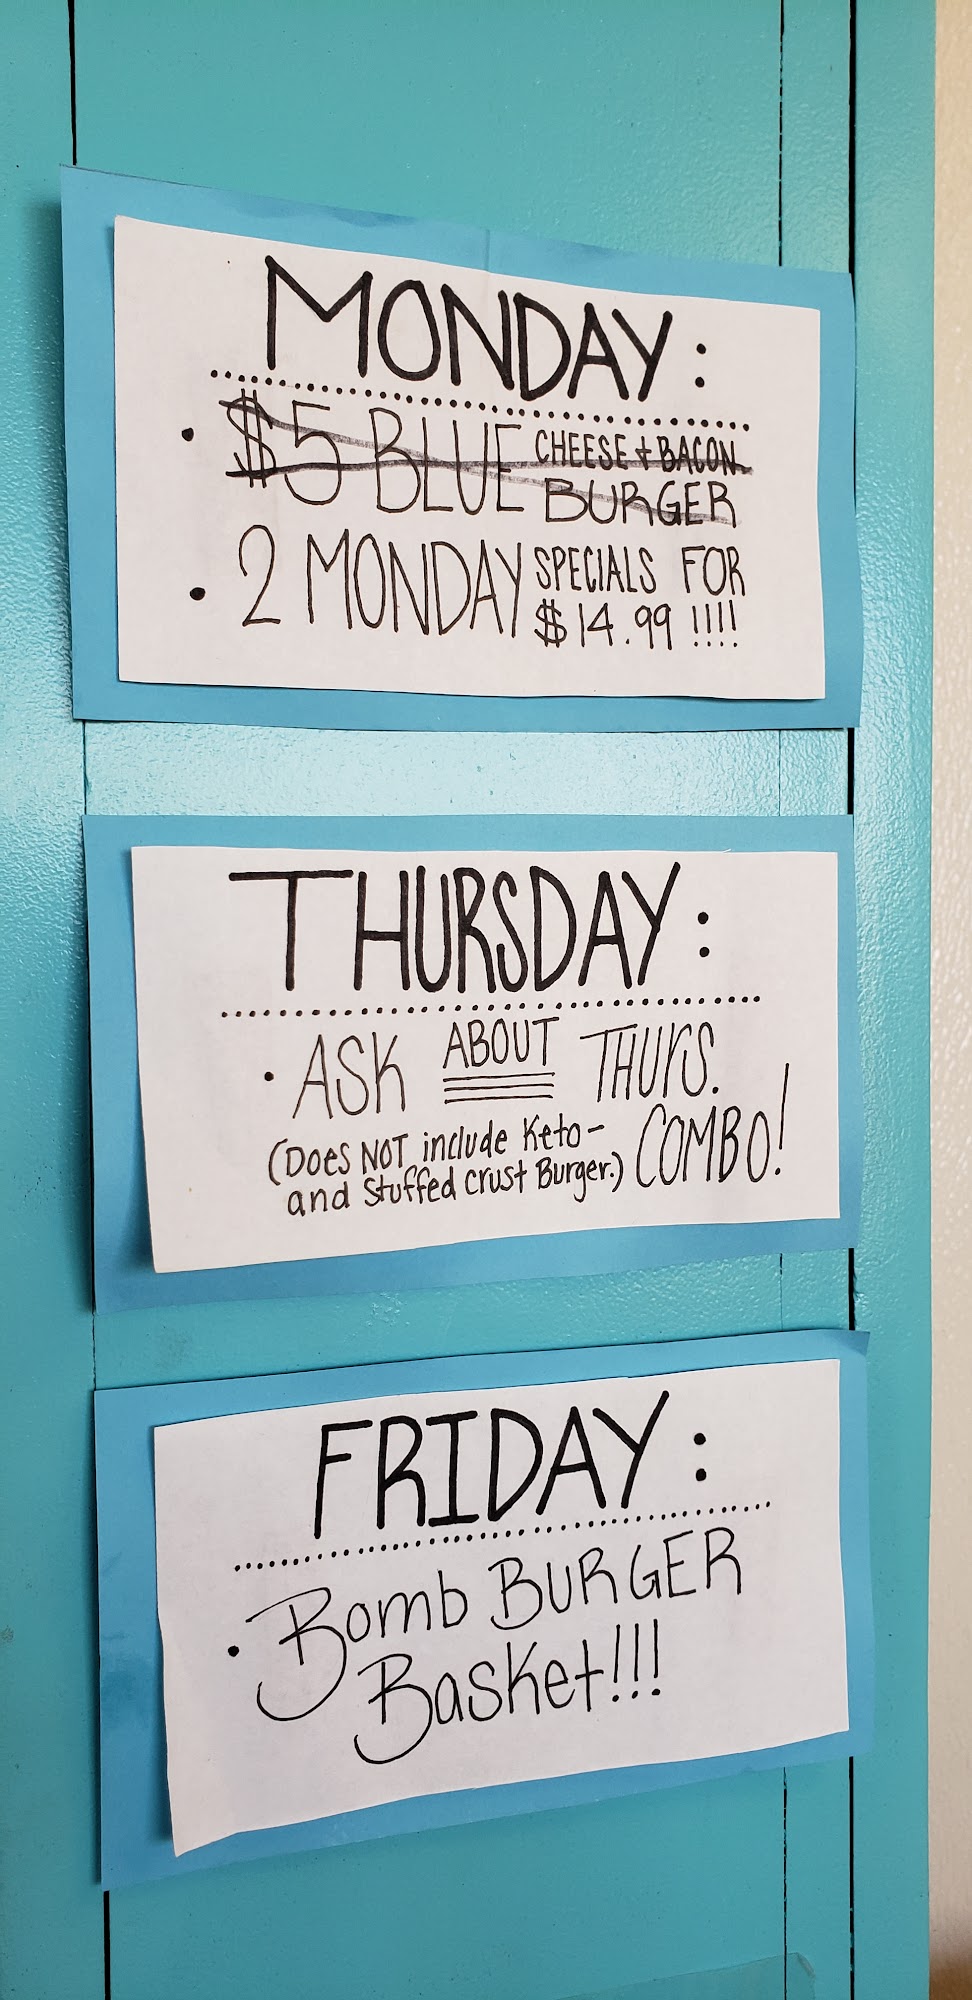 MONDAY:
• $5 BLUE CHEESE + BACON BURGER
• 2 MONDAY SPECIALS FOR $14.99 !!!!
THURSDAY:
• ASK ABOUT THURS. COMBO!
(DOES NOT include Keto-
and Stuffed Crust Burger.)
FRIDAY:
• Bomb BURGER
Basket!!!